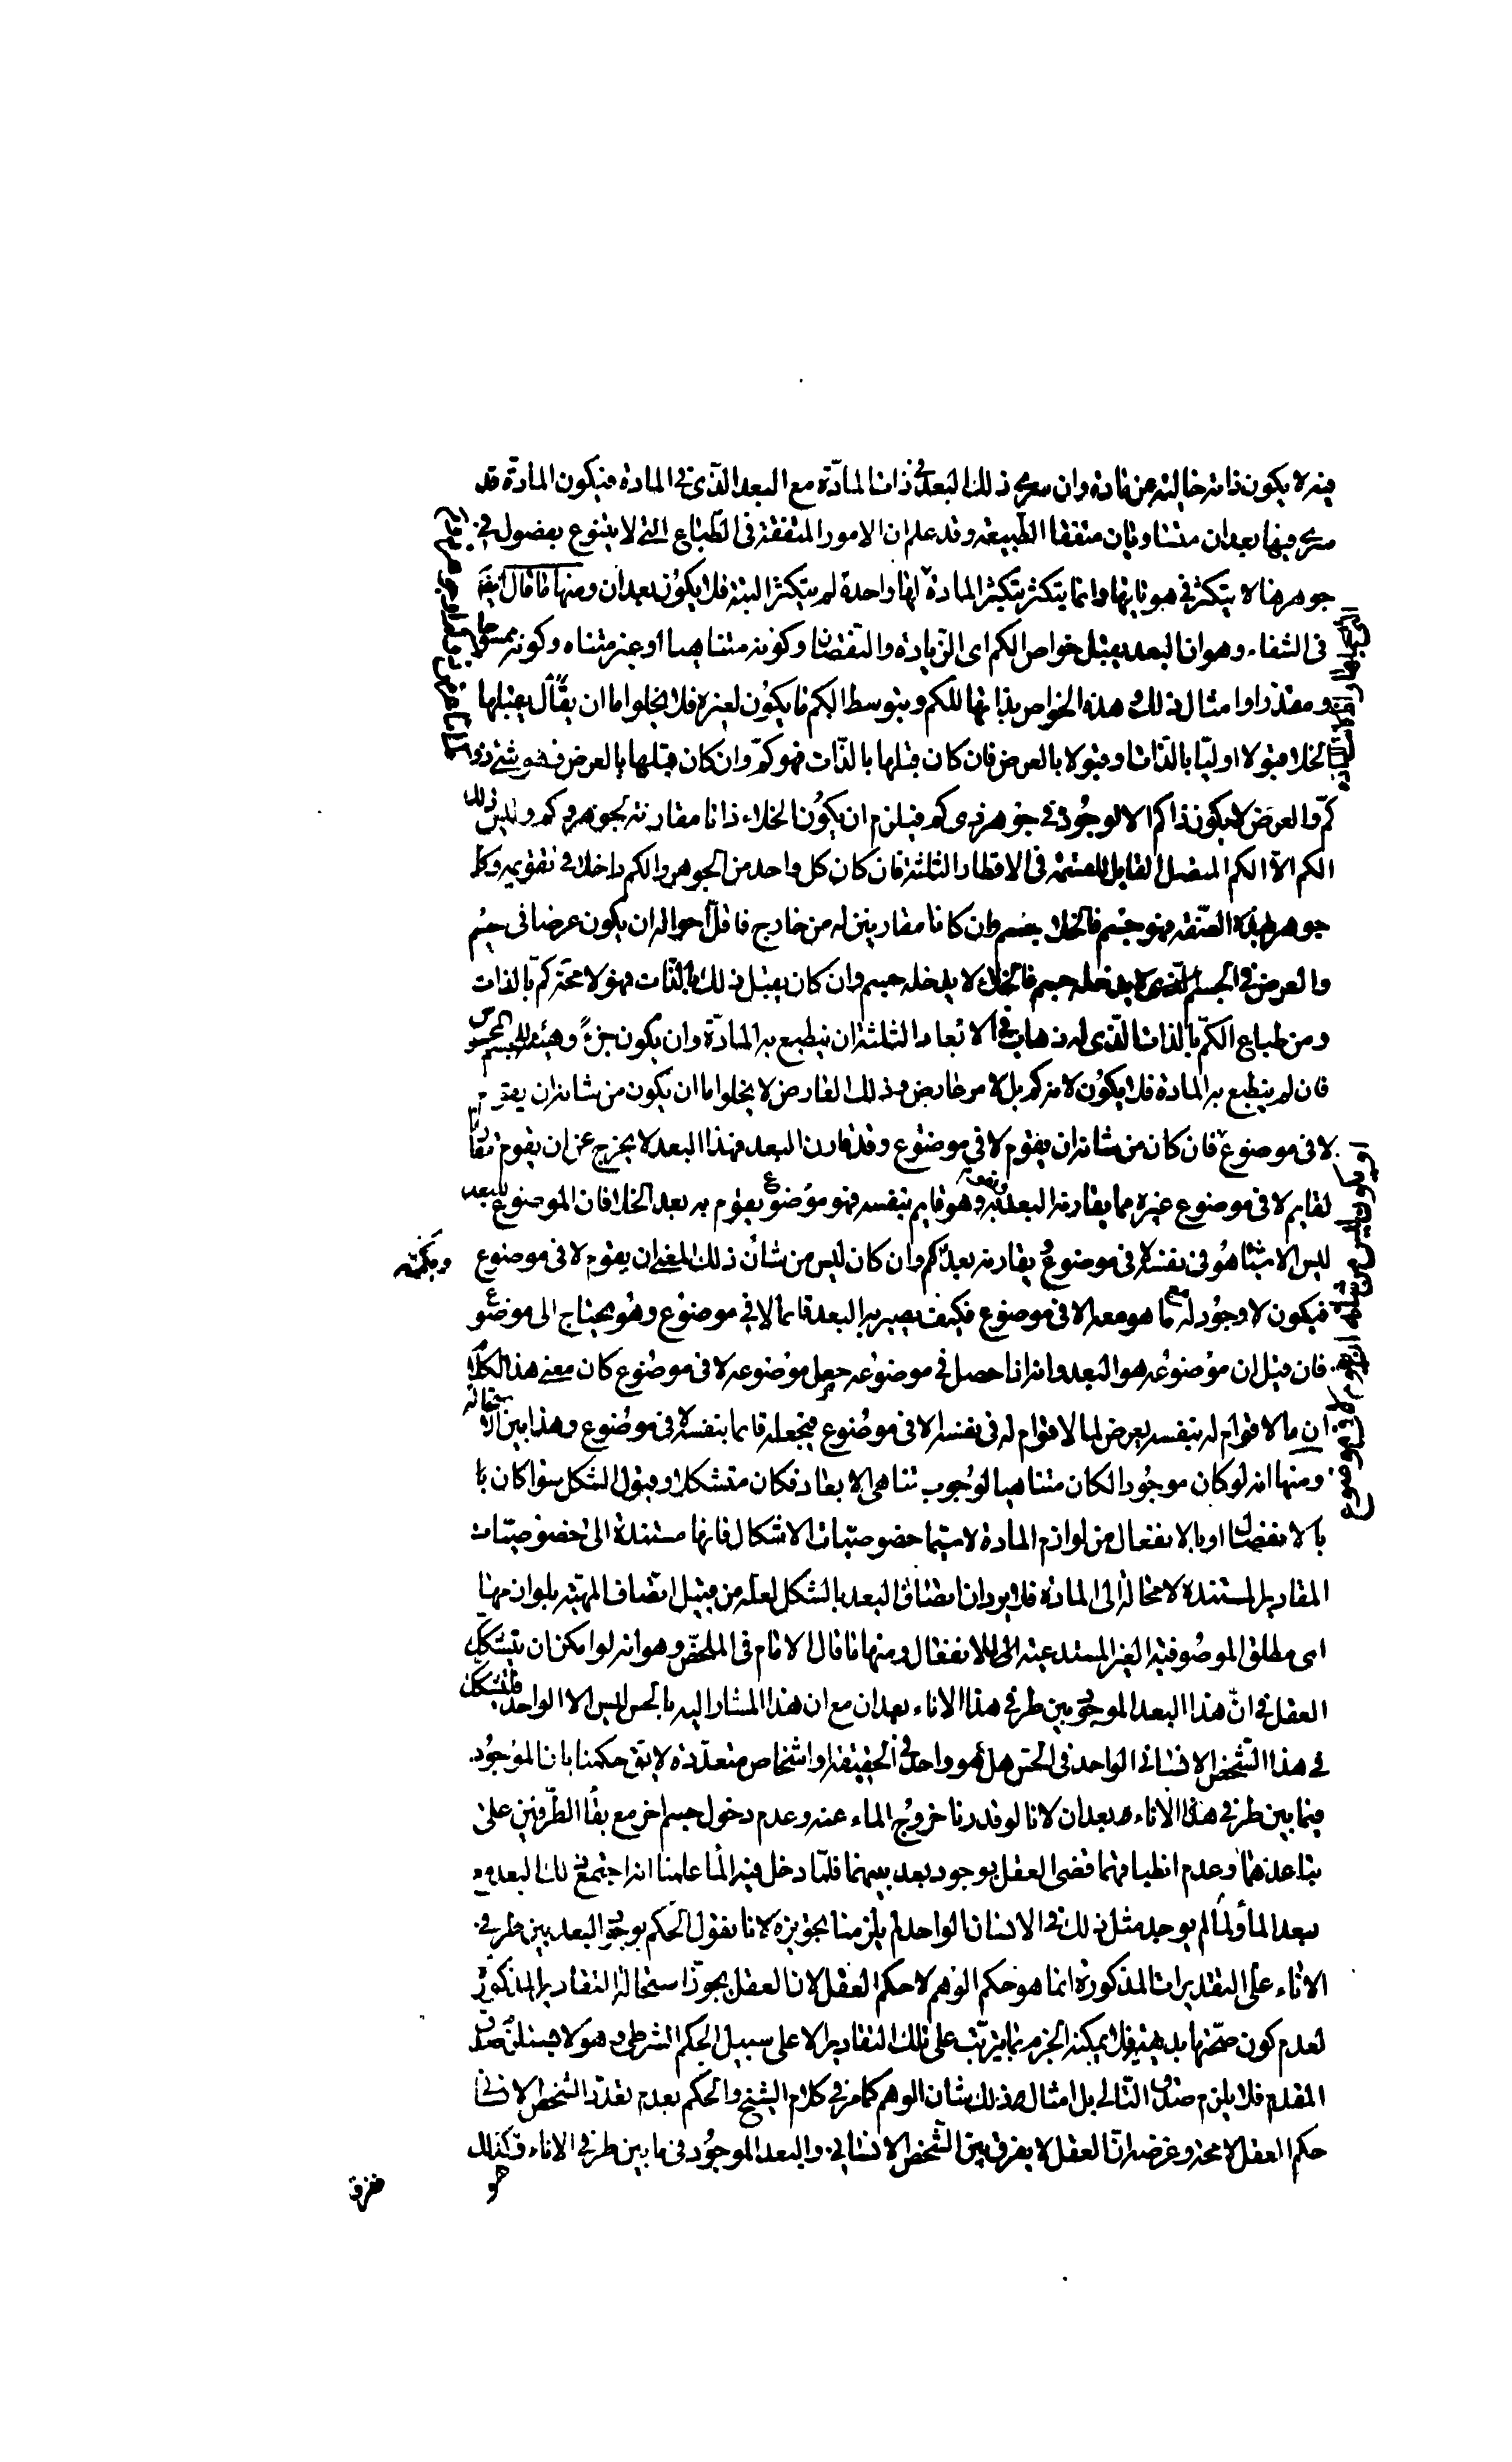 فيه لا يكون ذاته خالية عن مادة وان سرى ذلك البعد في ذات المادّة مع البعد الّذي في المادة فيكون المادّة قد
سرى فيها بعدان متساويان متفقا الطّبيعة وقد علم ان الامور المتفقة في الطّباع التي لا يتنوع بفصول في
جوهرها لا يتكثر في هوياتها وانما يتكثر بتكثر المادة لها واحدة لم يتكثر البتة فلا يكون بعدان ومنها ما قال ايضا
في الشفاء وهو ان البعد يقبل خواص الكم اى الزيادة والنقصان وكونه متناهيا او غير متناه وكونه ممسوحا
ومقدرا وامثال ذلك وهذه الخواص بذاتها للكم وبتوسط الكم ما يكون لغيره فلا يخلوا اما ان يقال يقبلها
الخلا قبولا اوليّا بالذات او قبولا بالعرض فان كان قبلها بالذّات فهو كمّ وان كان قبلها بالعرض فهو شئ ذو
كمّ والعرض لا يكون ذا كم الا لوجوده في جوهر ذى كم فيلزم ان يكون الخلاء ذاتا مقارنة لجوهر وكم وليس ذلك
الكم الا الكم المتصل القابل للقسمة في الاقطار الثلثة فان كان كل واحد من الجوهر والكم داخلا في تقويمه وكل
جوهر بهذه الصّفة فهو جسم فالخلا جسم وان كانا مقارنين له من خارج فاقل احواله ان يكون عرضا في جسم
والعرض في الجسم الّذي لا يدخله جسم فالخلاء لا يدخله جسم وان كان يقبل ذلك بالذّات فهو لا محة كمّ بالذات
ومن طباع الكمّ بالذات الّذي له ذهاب في الابعاد الثلثة ان ينطبع به المادّة وان يكون جزءً وهيئة للجسم المحسوس
فان لم ينطبع به المادة فلا يكون لانه كم بل لامر عارض وذلك العارض لا يخلوا اما ان يكون من شانه ان يقوم
لا في موضوع فان كان من شانه ان يقوم لا في موضوع وقد قارن البعد فهذا البعد لا يخرج عن ان يقوم مقارنا
لقايم لا في موضوع غيره مما يقارنه البعد وهو قايم بنفسه فهو موضوع يقوم به بعد الخلا فان الموضوع للبعد
ليس الا شيئا هو في نفسه لا في موضوع يقارنه بعد كم وان كان ليس من شأن ذلك المعنى ان يقوم لا في موضوع
فيكون لا وجود له مع ما هو معه الا في موضوع فكيف يصير به البعد قائما لا في موضوع وهو يحتاج الى موضوع
فان قيل ان موضوعه هو البعد وانه اذا حصل في موضوعه جعل موضوعه لا في موضوع كان معنى هذا الكلام
ان ما لا قوام له بنفسه يعرض لما لا قوام له في نفسه الا في موضوع فيجعله قائما بنفسه لا في موضوع وهذا بين الاستحالة
ومنها انه لو كان موجودا لكان متناهيا لوجوب تناهى الابعاد فكان متشكلا وقبول الشكل سواء كان با
بالانفصال او بالانفعال من لوازم المادة لا سيّما خصوصيات الاشكال فانها مستندة الى خصوصيّات
المقادير المستندة لا محالة الى المادة فلا يرد ان اتصاف البعد بالشكل لعله من قبيل اتصاف المهيّة بلوازمها
اى مطلق الموصوفية الغير المستدعية للانفعال ومنها ما قال الامام في الملخّص وهو انه لو امكن ان يتشكك
العقل في انّ هذا البعد الموجود بين طرفي هذا الاناء بعدان مع ان هذا المشار اليه بالحس ليس الا الواحد فليتشكك
في هذا الشّخص الانساني الواحد في الحس هل هو واحد في الحقيقة او اشخاص متعدّدة لا يق حكمنا بان الموجود
فيما بين طرفي هذا الاناء بعدان لانا لو قدرنا خروج الماء عنه وعدم دخول جسم اخر مع بقاء الطّرفين على
تباعدهما وعدم انطباقهما قضى العقل بوجود بعد بينهما فلمّا دخل فيه الماء علمنا انه اجتمع ذلك البعد مع
بعد الماء ولما لم يوجد مثل ذلك في الانسان الواحد لم يلزمنا تجويزه لانا نقول الحكم بوجود البعد بين طرفي
الاناء على التقديرات المذكورة انما هو حكم الوهم لا حكم العقل لان العقل يجوّز استحالة التقادير المذكورة
لعدم كون صحّتها بديهية فلا يمكنه الجزم بما يترتّب على تلك التقادير الا على سبيل الحكم الشرطي وهو لا يستلزم صدق
المقدم فلا يلزم صدق التّالى بل امثال ذلك شان الوهم كما مر في كلام الشيخ والحكم بعدم تعدّد الشخص الانساني
حكم العقل لا محة وغرضه انّ العقل لا يفرق بين الشّخص الانساني والبعد الموجود في ما بين طرفي الاناء فكذلك
هو
او يكون ليس من شانه ان يقوم لا في موضوع